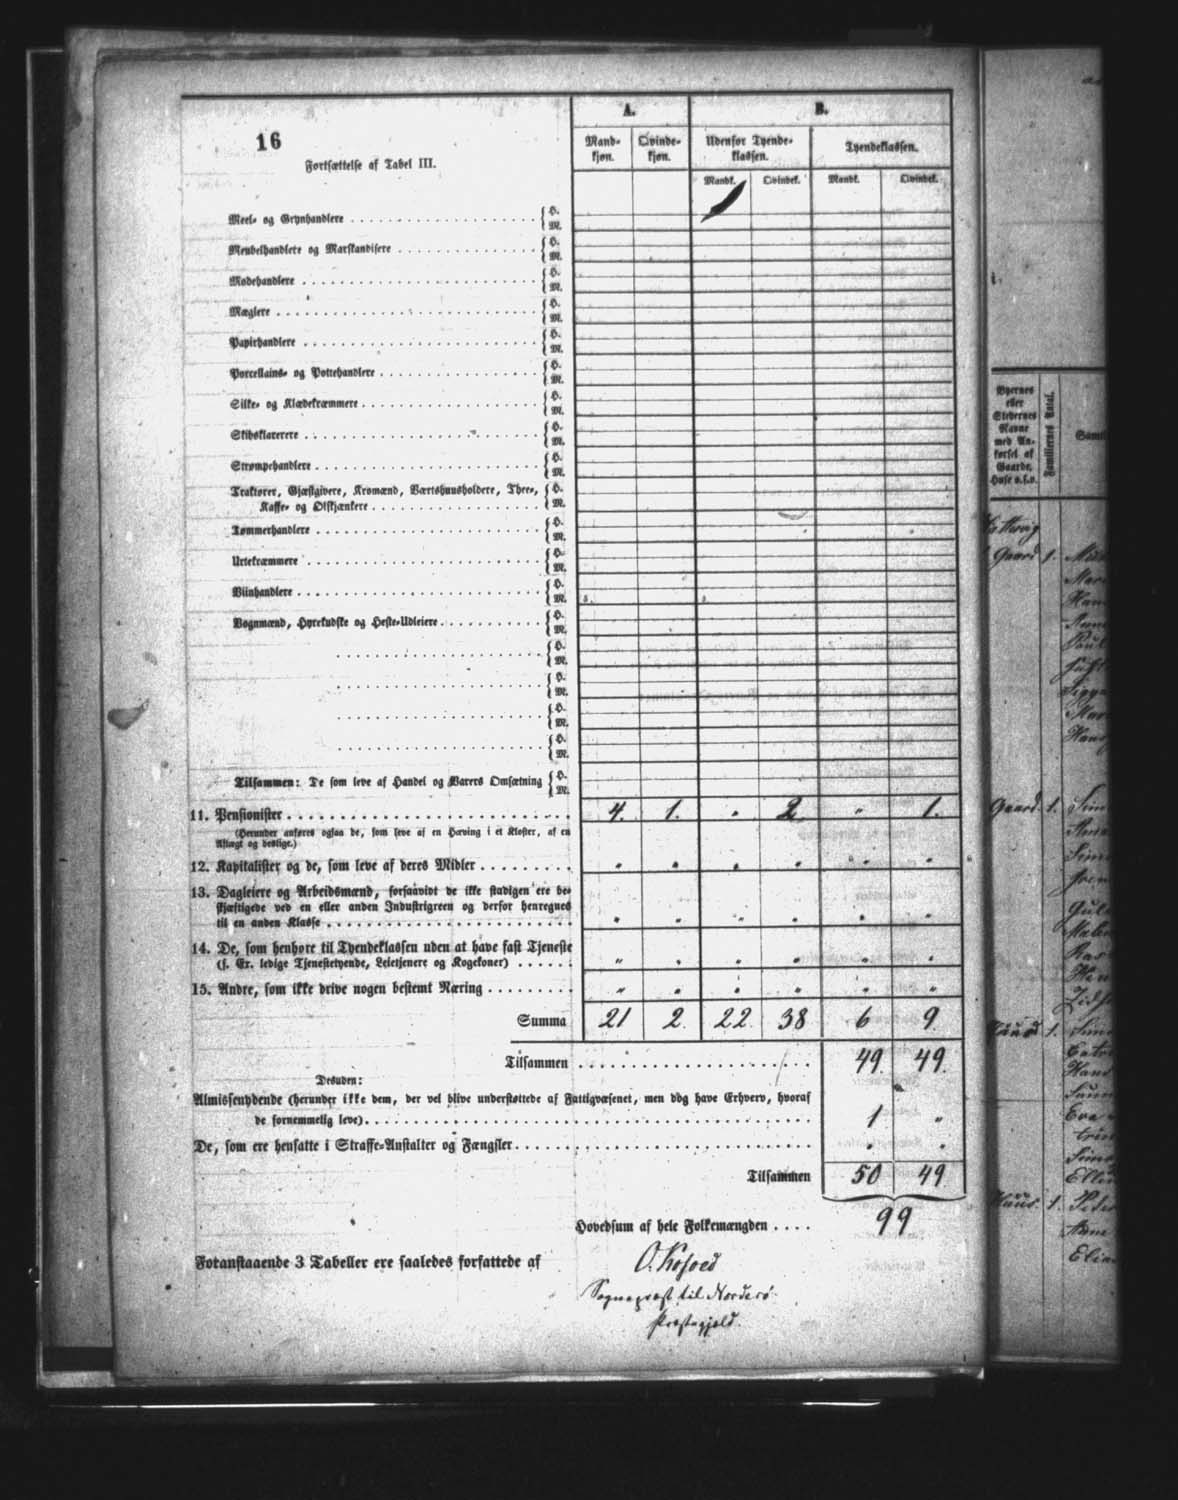 16
Fortsættelse af Tabel III.
A.
B.
Mand-kjøn.
Qvinde-kjøn.
Udenfor Tyende-klassen.
Tyendeklassen.
Mandk.
Qvindek.
Mandk.
Qvindek.
Meel- og Grynhandlere { H. M.
Meubelhandlere og Marskandisere { H. M.
Modehandlere { H. M.
Mæglere { H. M.
Papirhandlere { H. M.
Porcellains- og Pottehandlere { H. M.
Silke- og Klædekræmmere { H. M.
Skibsklarerere { H. M.
Strømpehandlere { H. M.
Traktører, Gjæstgivere, Kromænd, Værtshuusholdere, Thee-, { H.
Kaffe- og Ølskjænkere M.
Tømmerhandlere { H. M.
Urtekræmmere { H. M.
Viinhandlere { H. M.
Vognmænd, Hyrekudske og Heste-Udleiere { H. M.
{ H. M.
{ H. M.
{ H. M.
{ H. M.
Tilsammen: De som leve af Handel og Varers Omsætning { H. M.
11. Pensionister 4. 1. " 2 " 1.
(Herunder anføres ogsaa de, som leve af en Hæving i et Kloster, af en
Aftægt og deslige.)
12. Kapitalister og de, som leve af deres Midler " " " " " "
13. Dagleiere og Arbeidsmænd, forsaavidt de ikke stadigen ere be-
skjæftigede ved en eller anden Industrigreen og derfor henregnes
til en anden Klasse " " " " " "
14. De, som henhøre til Tyendeklassen uden at have fast Tjeneste
(f. Ex. ledige Tjenestetyende, Leietjenere og Kogekoner) " " " " " "
15. Andre, som ikke drive nogen bestemt Næring " " " " " "
Summa 21 2. 22. 38 6 9
Tilsammen 49. 49.
Desuden:
Almissenydende (herunder ikke dem, der vel blive understøttede af Fattigvæsenet, men dog have Erhverv, hvoraf
de fornemmelig leve) 1 "
De, som ere hensatte i Straffe-Anstalter og Fængsler " "
Tilsammen 50 49
Hovedsum af hele Folkemængden 99
Foranstaaende 3 Tabeller ere saaledes forfattede af O. Kofoed
Sognepræst til Norderø
Præstegjeld.
Byernes
eller
Stedernes
Navne
med An-
førsel af
Gaarde,
Huse o.s.v.
Familiernes Antal.
Gaard 1.
Gaard 1.
Huus 1.
Huus. 1.